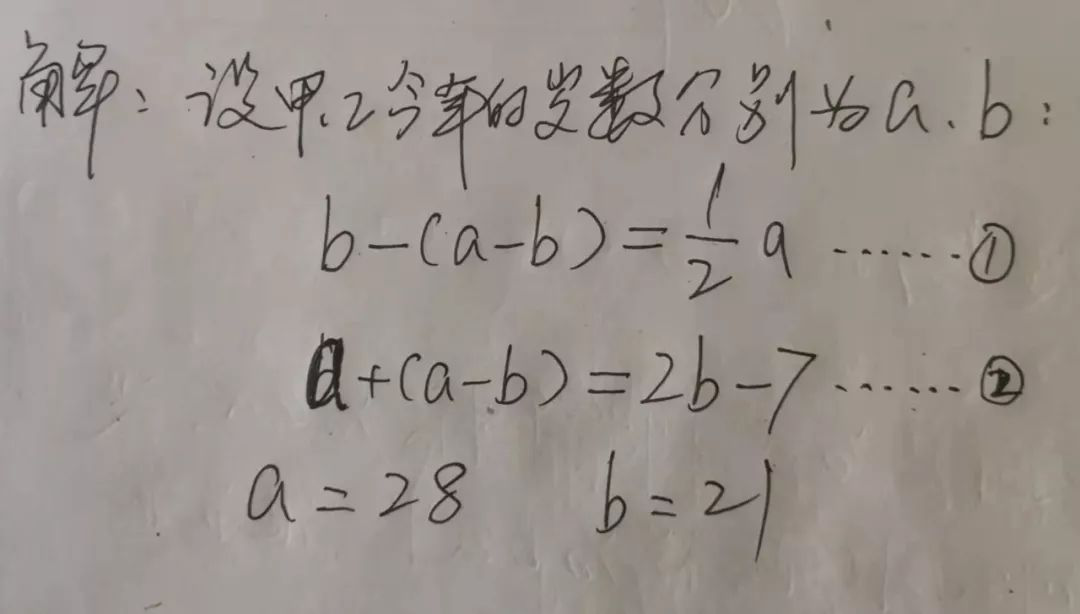 解：设甲、乙今年的岁数分别为a、b：
b-(a-b)=1/2 a ……①
a+(a-b)=2b-7……②
a=28 b=21